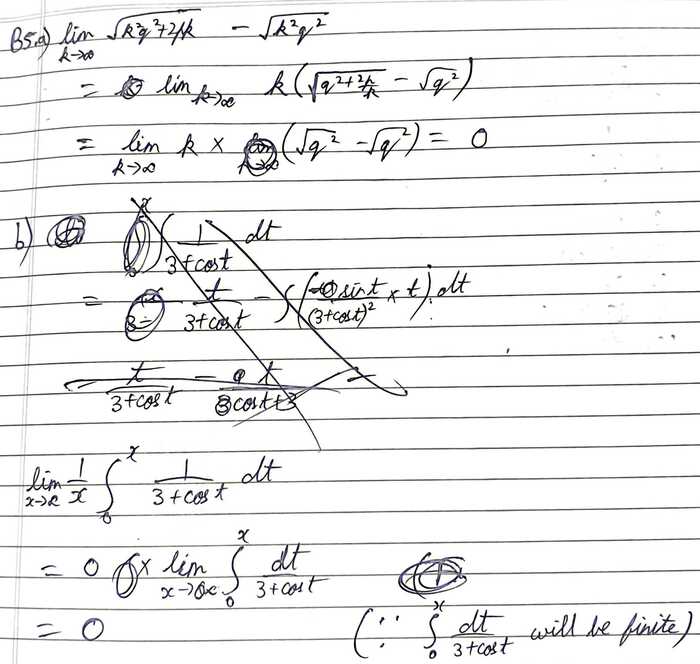 B5.a) lim k→∞ √(k²q²+2pk) - √(k²q²)
= lim k→∞ k(√(q²+2p/k) - √q²)
= lim k→∞ k × (√q² - √q²) = 0
b) ∫₀ˣ 1/(3+cost) dt
= t/(3+cost) - ∫(-sint/(3+cost)² × t) dt
t/(3+cost) - t/(3cost+3)
lim 1/x ∫₀ˣ 1/(3+cost) dt
= 0 × lim x→∞ ∫₀ˣ dt/(3+cost)
= 0 (∵ ∫₀ˣ dt/(3+cost) will be finite)